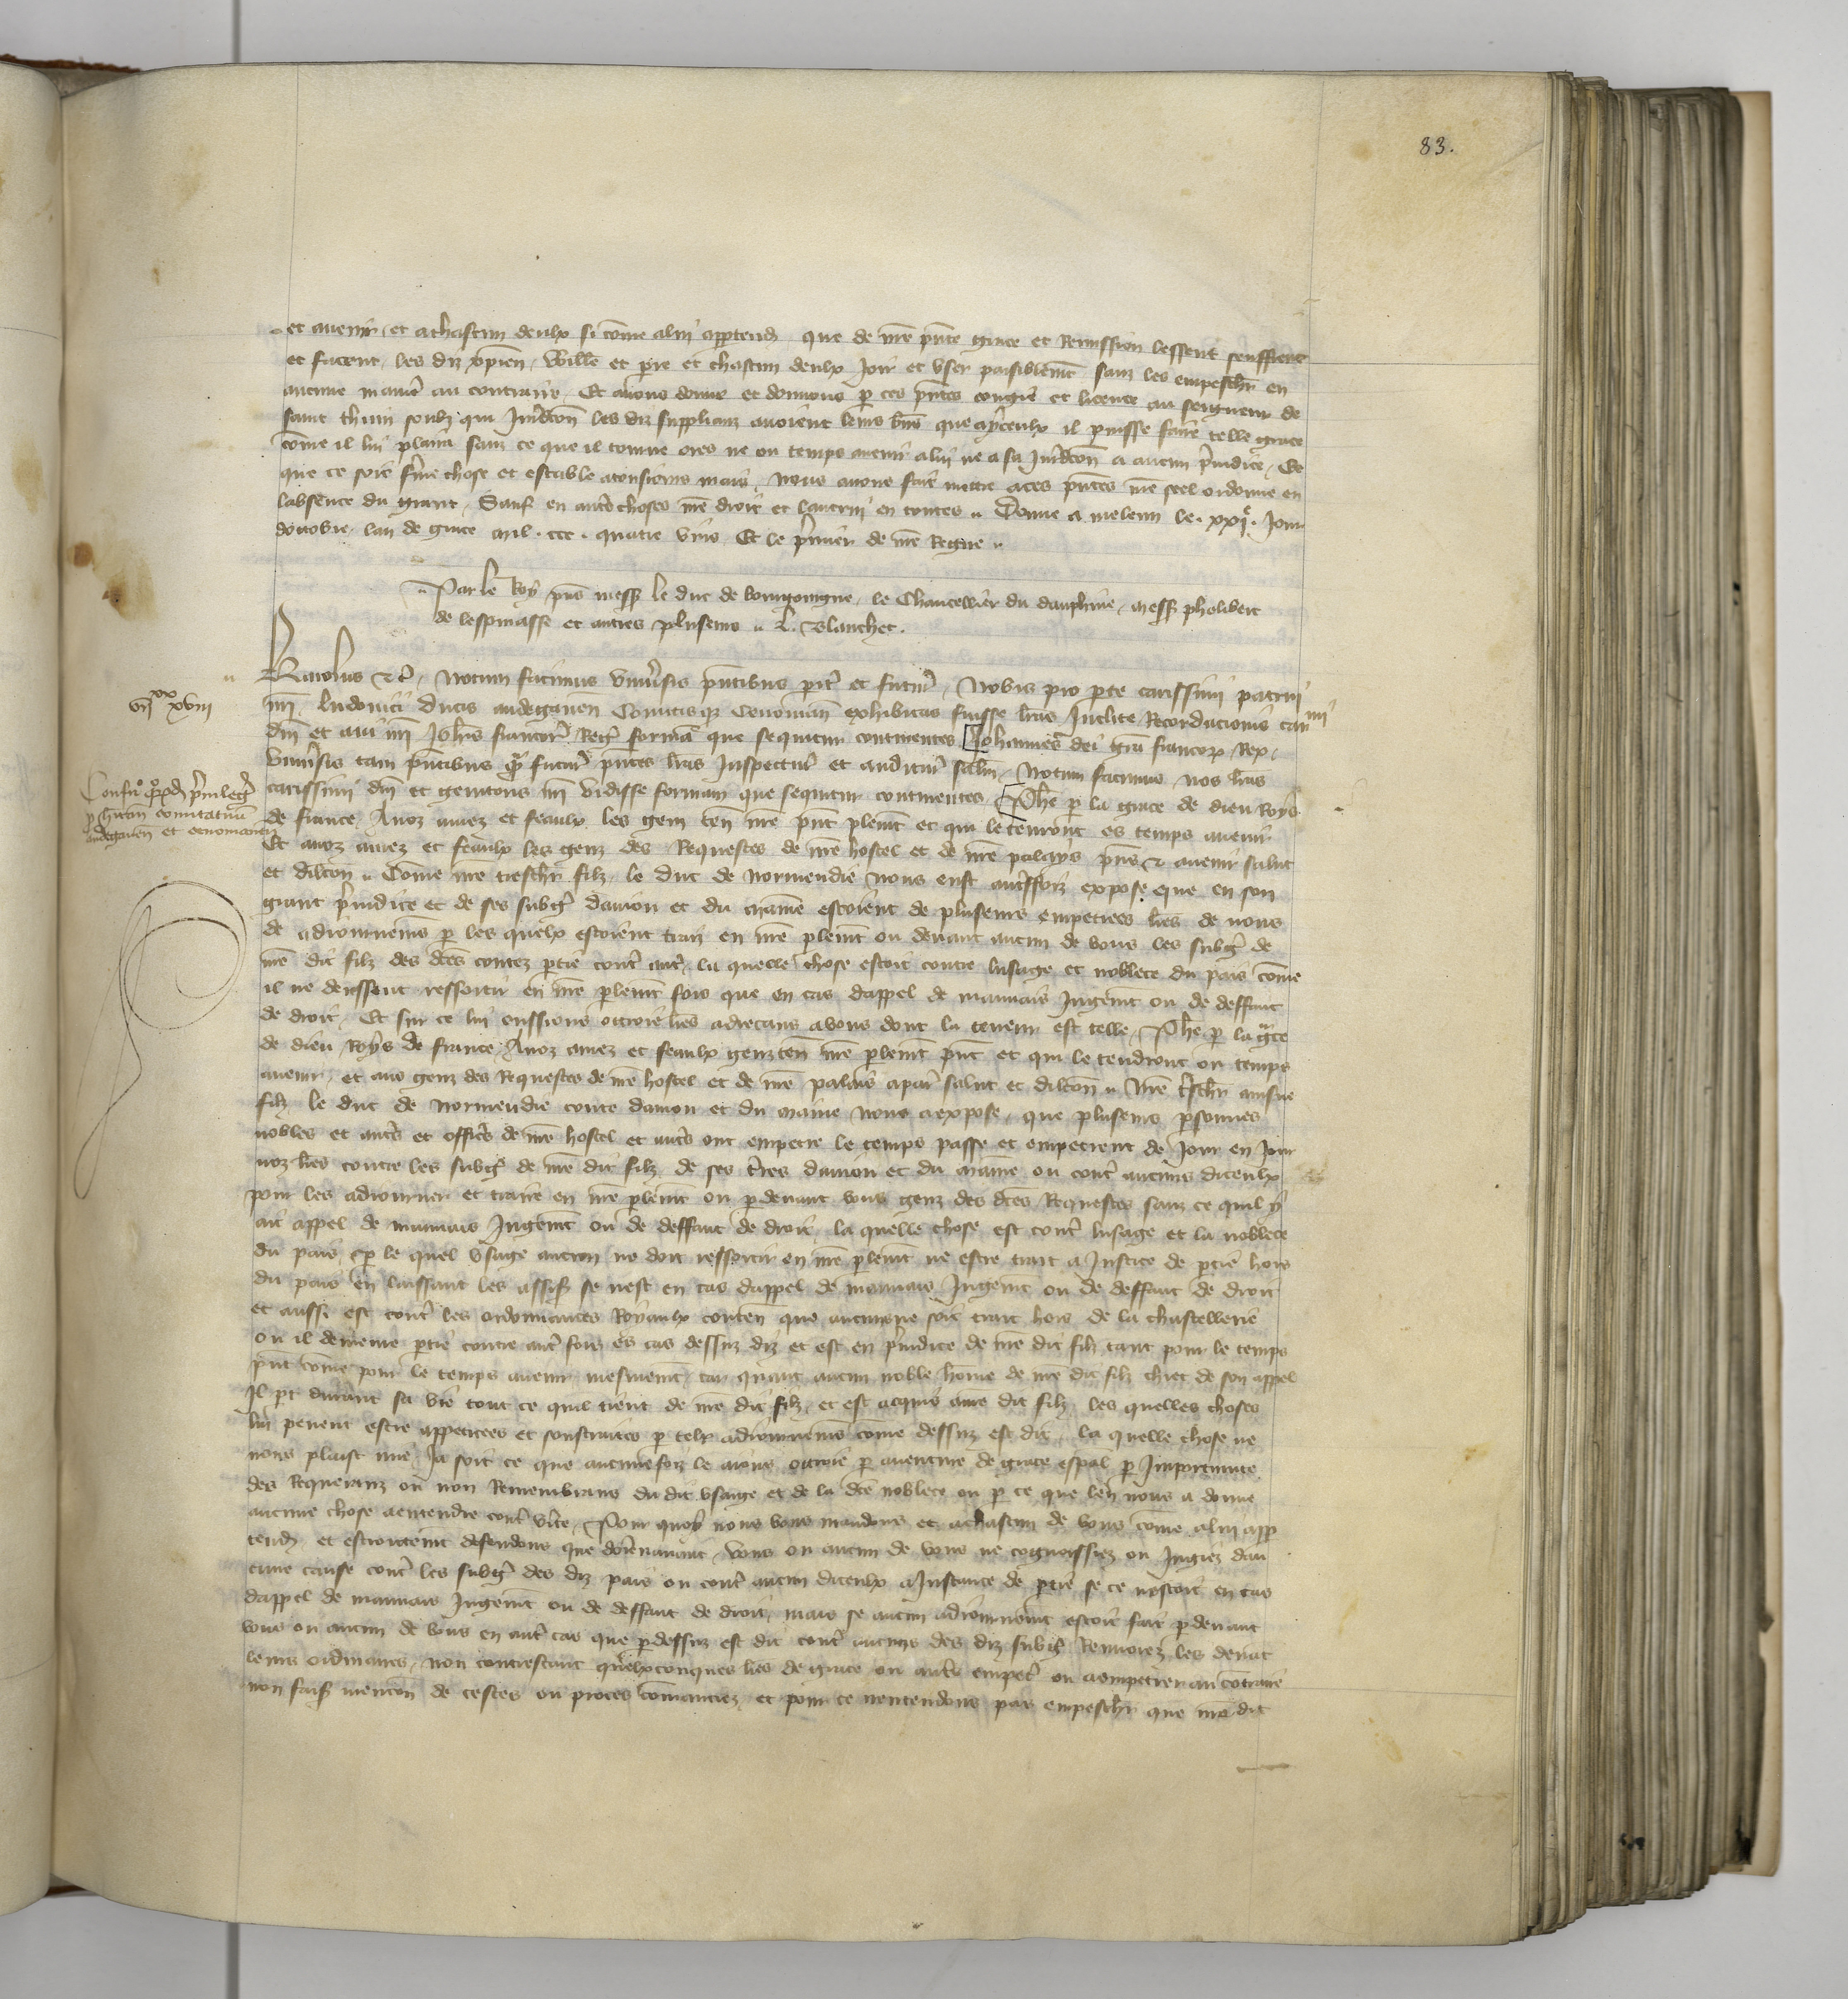 83.
et avenir et a chascun deulx si cõme a lui apptendr que de nre pñte grace et Remission lessent seuffrent
et facent les diz xpien, Wille et pre et chascun deulx Joir et user paisiblemt sanz les empeschr en
aucune maniẽ au contraire. Et avons donne et donnons p ces pñtes congie et licence au seigneur de
saint souhz qui Jurdicõn les diz supplianz avoient leurs biẽs que a yceulx il puisse faire telle grace
cõme il lui plaira sanz ce que il tourne ores ne ou temps avenir a lui ne a sa Jurdicõn a aucun piudice. Et
que ce soit fme chose et estable a tousiours mais, Nous avons fait mettre a ces pñtes nre seel ordonne en
labsence du grant. Sauf en autres choses nre droit et lautrui en toutes. Donne a meleun le .xxije. Jour
doctobre. lan de grace mil .ccc. quatre vins Et le pmier de nre Regne
Par le Roy pns mess le duc de bourgoingne, le Chancellier du dauphine, mess phelibert
de lespinasse et autres plusieurs. L. Blanchet.
vijxx xviij
Karolus etc. Notum facimus universis pñtibus pit et futur, Nobis pro pte carissimi patrui
nri Ludovici Ducis andegaven Comitisqz Cenoman exhibitas fuisse lras Inclite Recordacionis carmi
dni et avi nri Johis francor Regis formã que sequitur continentes Johannes dei gra francorz Rex,
Universis tam pñtibus qz futur pñtes lras Inspectur et auditur salm. Notum facimus nos lras
carissimi dni et genitoris nri vidisse formam que sequitur continentes Phe p la grace de dieu Roys
Confir quordã privileg
p hitõn comitatuũ
andegaven et cenomanen
de france. A noz amez et feaulx les genz ten nre pnt plemt et qui le tenront es temps avenir
Et a noz amez et feaulx les genz des Requestes de nre hostel et de nre palays pns et avenir salut
et dilcon. Cõme nre treschr filz le duc de normendie nous eust autreffoiz expose que en son
grant piudice et de ses subgz danjou et du maine estoient de plusieurs empetrees lres de nous
de adiournemens p les quelx estoient traiz en nre plemt ou devant aucun de vous les subgz de
nre dit filz des dtes contez ptie cont aut, la quelle chose estoit contre lusage et noblece du pais cõme
il ne deussent ressortir en nre plemt fors que en cas dappel de mauvais Jugemt ou de deffaut
de droit. Et sur ce lui eussions ottroie lres adrecans a vous dont la teneur est telle. Phe p la grce
de dieu Roys de france. A noz amez et feaulx genz ten nre plemt pnt et qui le tendront ou temps
avenir, et aus genz des Requestes de nre hostel et de nre palais a par salut et dilcon. Nre treschr ainsne
filz le duc de Normendie conte danjou et du maine nous a expose, que plusieurs psonnes
nobles et autres et officrs de nre hostel et autres ont empetre le temps passe et empetrent de Jour en Jour
noz lres contre les subgz de nre dit filz de ses tres danjou et du maine ou cont aucuns diceulx
pour les adiourner et traire en nre plemt ou p devant vous genz des dtes Requestes sanz ce quil y
ait appel de mauvais Jugemt ou de deffaut de droit, la quelle chose est cont lusage et la noblece
du pais, p le quel usage aucun ne doit ressortir en nre plemt ne estre trait a Justice de ptie hors
du pais en laissant les assis se nest en cas dappel de mauvais Jugemt ou de deffaut de droit
et aussi est cont les ordonnances Royaulx conten que aucun ne soit trait hors de la chastellerie
ou il demeure ptie contre aut fors es cas dessuz diz et est en piudice de nre dit filz tant pour le temps
pnt cõme pour le temps avenir mesmemt, car quant aucun noble home de nre dit filz chiet de son appel
Il pt durant sa vie tout ce quil tient de nre dit filz, et est acquis a nre dit filz les quelles choses
lui pevent estre appeticees et soustraites p telx adiournemens cõme dessuz est dit. la quelle chose ne
nous plaist mie. Ja soit ce que aucune foiz le aions ottroie p aventure de grace espal p Importunite
des Requeranz ou non Remembrans du dit usaige et de la dte noblece ou p ce que len nous a donne
aucune chose a entendre cont vite. Pour quoy nous vous mandons et a chascun de vous cõme a lui app
tendr et estroitemt defendons que dorenavant, vous ou aucun de vous ne cognoissiez ou Jugiez dau
cune cause cont les subgz des diz pais ou cont aucun diceulx a Instance de ptie se ce nestoit en cas
dappel de mauvais Jugemt ou de deffaut de droit, mais se aucun adiournemt estoit fait p devant
vous ou aucun de vous en aut cas que p dessuz est dit cont aucuns des diz subgz Renvoiez les devant
leurs ordinaires, non contrestant quelxconques lres de grace ou autres empet ou a empetrer au contraire
non fais mencon de cestes ou proces cõmanciez, et pour ce nentendons pas empeschr que nre dit